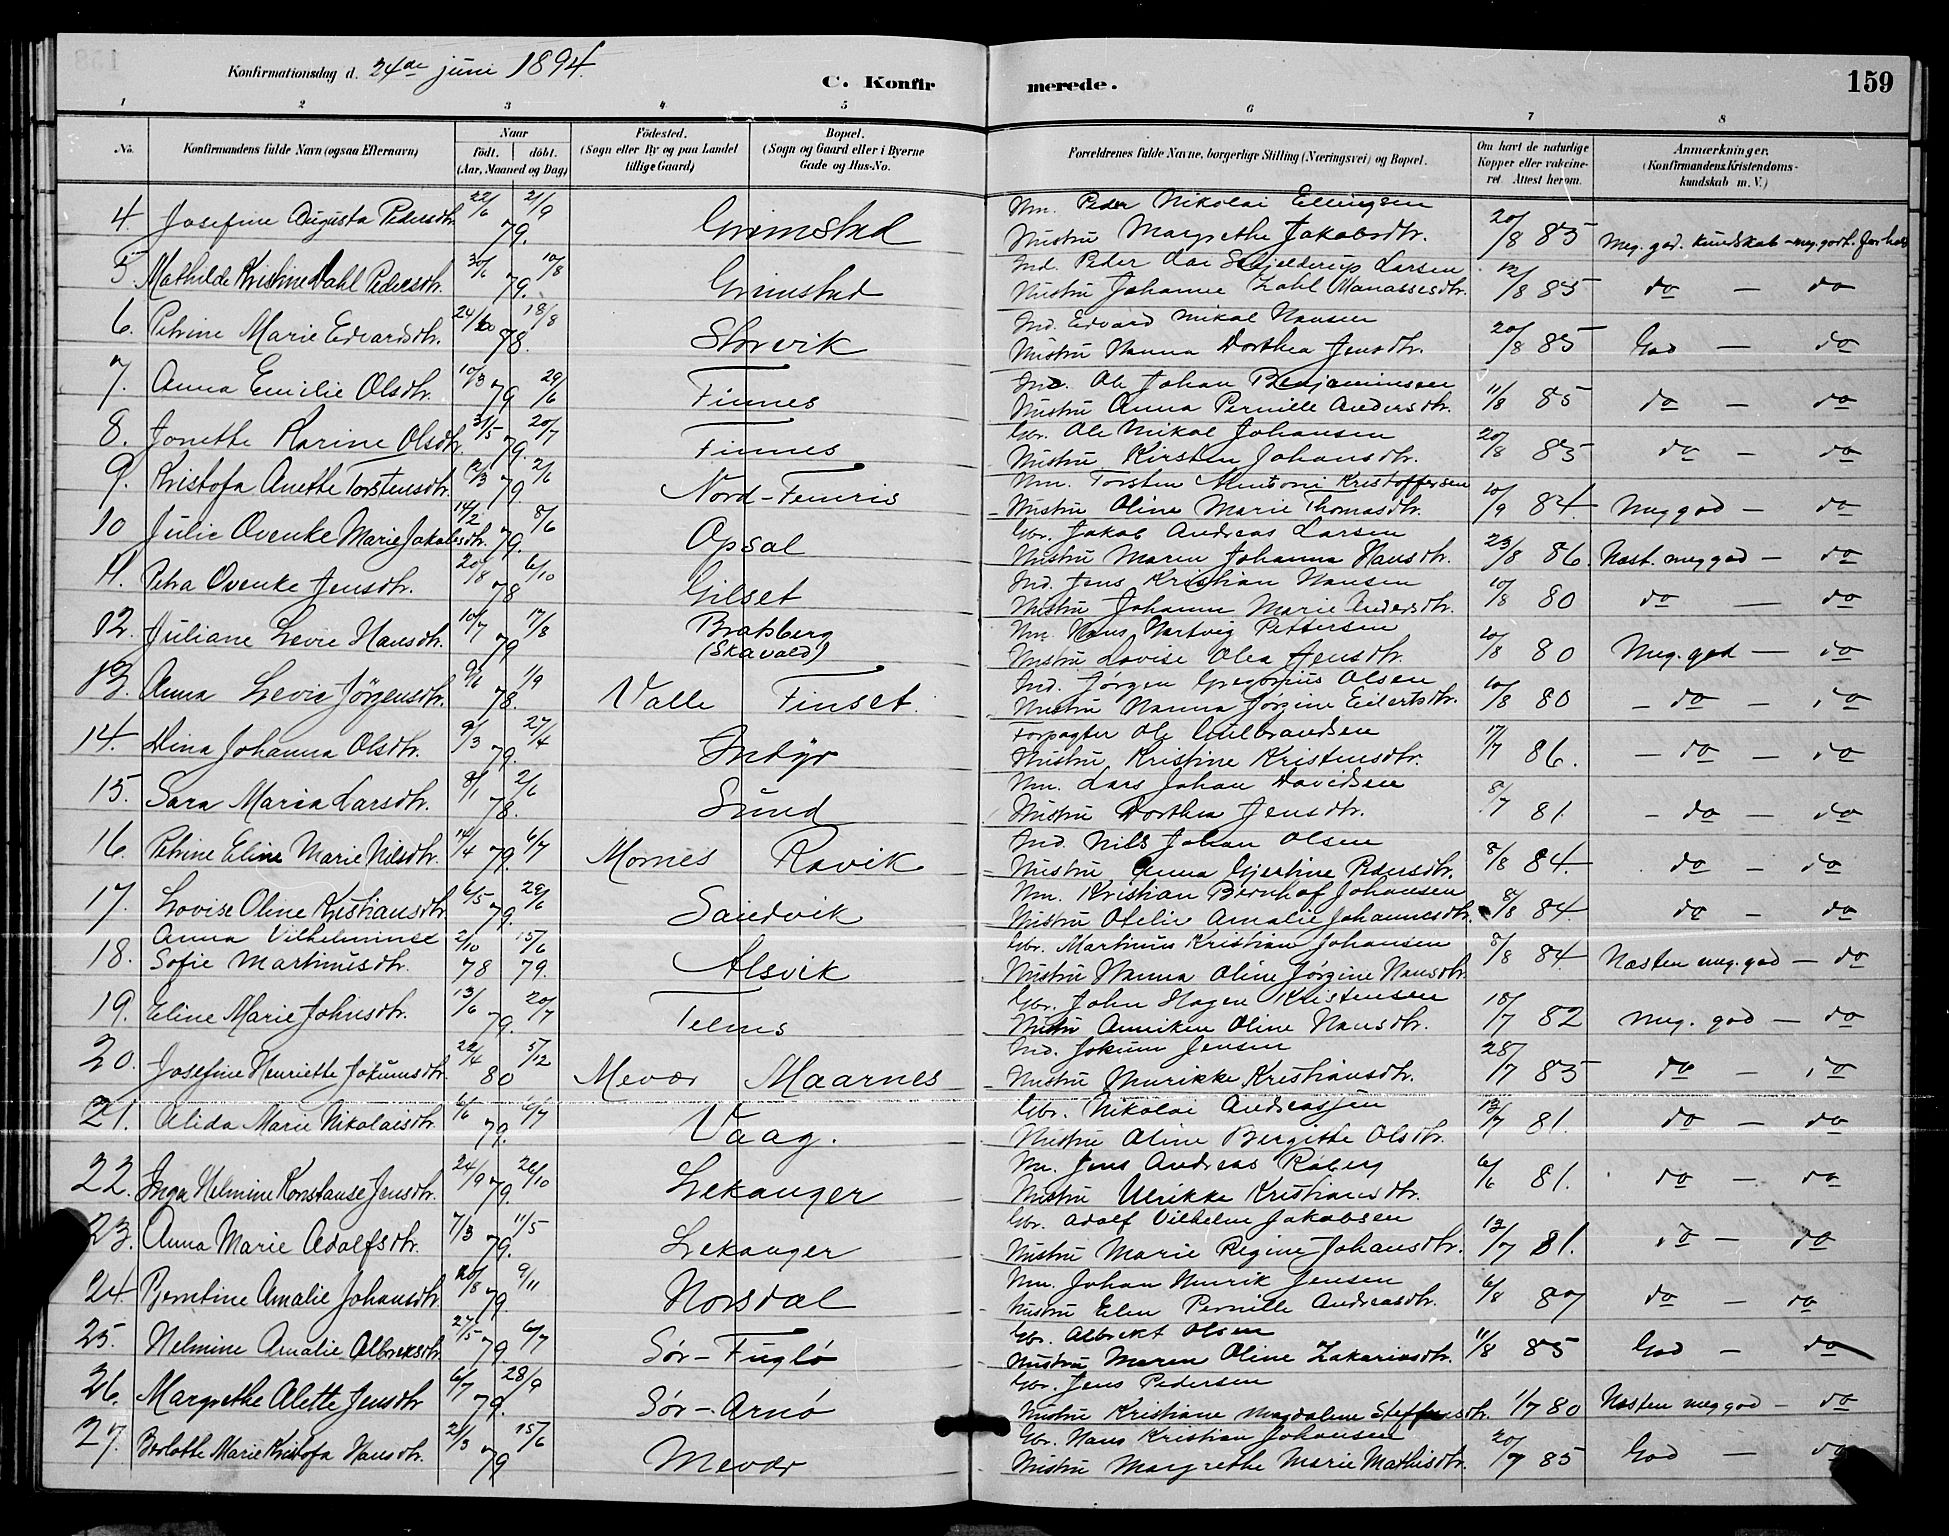 Konfirmationsdag d. 24de juni 1894.
C. Konfirmerede.
159
1 2 3 4 5 6 7 8
No.
Konfirmandens fulde Navn (ogsaa Efternavn)
Naar
født. døbt.
(Aar, Maaned og Dag)
Fødested.
(Sogn eller By og paa Landet
tillige Gaard)
Bopæl.
(Sogn og Gaard eller i Byerne
Gade og Hus-No.
Forældrenes fulde Navne, borgerlige Stilling (Næringsvei) og Bopæl.
Om havt de naturlige
Kopper eller vakcine-
ret Attest herom.
Anmærkninger.
(Konfirmandens Kristendoms-
kundskab m. V.)
4. Josefine Augusta Pedersdtr. 22/6 79. 21/9 Grimstad Nm. Peder Nikolai Ellingsen
Hustru Margrethe Jakobsdtr. 20/8 85 Meg. god. kundskab - meg. godt. forhold
5 Mathilde Kristine Dahl Pedersdtr. 30/6 79. 10/8 Grimstad Ind. Peder Schjelderup Larsen
Hustru Johanne Zahl Manassesdtr. 12/8 85 do — do
6. Petrine Marie Edvardsdtr. 24/6 78. 18/8 Storvik Ind. Edvard Mikal Hansen
Hustru Hanna Dorthea Jensdtr. 20/8 85 God — do
7. Anna Emilie Olsdtr. 10/3 79 29/6 Finnes Ind. Ole Johan Benjaminsen
Hustru Anna Pernille Andersdtr. 11/8 85 do — do
8. Jonette Karine Olsdtr. 31/5 79. 20/7 Finnes Gbr. Ole Mikal Johansen
Hustru Kirsten Johansdtr. 20/8 85 do — do
9. Kristofa Anette Torstensdtr. 12/3 79. 2/6 Nord-Femris Nm. Torsten Kristoffersen
Hustru Oline Marie Thomasdtr. 10/9 84. Meg god — do
10 Julie Ovenke Marie Jakobsdtr. 14/2 79. 8/6 Opsal Gbr. Jakob Andreas Larsen
Hustru Maren Johanna Hansdtr. 23/8 86. Næst. meg god — do
11. Petra Ovenke Jensdtr. 20/8 78 6/10 Gilset Ind. Jens Kristian Hansen
Hustru Johanna Marie Andersdtr. 10/8 80 do — do
12. Juliane Levie Hansdtr. 10/7 79 17/8 Braksberg
(Skavold) Nm. Hans Hartvig Pettersen
Hustru Lovise Olea Jensdtr. 10/8 80 Meg. god — do
13. Anna Levie Jörgensdtr. 9/6 78. 1/9 Valle Finset. Ind. Jörgen Gregorius Olsen
Hustru Hanna Jörgine Eilertsdtr. 10/8 80 — do — do
14. Dina Johanna Olsdtr. 9/3 79. 27/4 Indyr Forpagter Ole Gulbrandsen
Hustru Kristine Kristensdtr. 17/7 86. — do — do
15. Sara Maria Larsdtr. 8/1 78. 2/6 Sund Nm. Lars Johan Davidsen
Hustru Dorthea Jensdtr. 8/7 81. — do — do
16. Petrine Eline Marie Nilsdtr. 14/4 79. 6/7 Mornes Ravik Ind. Nils Johan Olsen
Hustru Anna Gjertine Pedersdtr. 8/8 84. do — do
17. Lovise Oline Kristiansdtr. 6/5 79. 29/6 Sandvik Nm. Kristian Bernhof Johansen
Hustru Otelie Amalie Johannesdtr. 8/8 84 do — do
18. Anna Vilhelminse
Sofie Martinusdtr. 2/10 78 15/6 79. Alsvik Gbr. Martinus Kristian Johansen
Hustru Hanna Oline Jörgine Hansdtr. 8/8 84. Næsten meg. god — do
19. Eline Marie Johnsdtr. 13/6 79. 20/7 Telnes Gbr. John Hagen Kristensen
Hustru Anniken Oline Hansdtr. 18/7 82 Meg. god — do
20. Josefine Henriette Jokumsdtr. 22/4 80 5/12 Mevær Maarnes Ind. Jokum Jensen
Hustru Henrikke Kristiansdtr. 28/7 85 do — do
21. Alida Marie Nikolaisdtr. 6/6 79. 6/7 Vaag. Gbr. Nikolai Andreassen
Hustru Oline Bergitte Olsdtr. 13/7 81. do — do
22. Inga Helmine Konstanse Jensdtr. 24/9 79. 26/10 Lekanger Nm. Jens Andreas Röberg
Hustru Ulrikke Kristiansdtr. 6/6 81. do — do
23. Anna Marie Adolfsdtr. 7/3 79. 11/5 Lekanger Gbr. Adolf Vilhelm Jakobsen
Hustru Marie Regine Johansdtr. 13/7 81. do — do
24. Berntine Amalie Johansdtr. 20/8 79. 9/11 Norsdal Nm. Johan Henrik Jensen
Hustru Elen Pernille Andreasdtr. 6/8 87 do — do
25. Helmine Amalie Albreksdtr. 27/5 79 6/7 Sør-Fuglø Gbr. Albrikt Olsen
Hustru Maren Oline Zakariasdtr. 11/8 85 God — do
26. Margrethe Alette Jensdtr 6/7 79. 28/9 Sør-Arnø Gbr. Jens Pedersen
Hustru Kristiane Magdalene Steffensdtr. 1/7 80 Næsten meg god — do
27. Berlotte Marie Kristofa Hansdtr. 21/3 79 15/6 Mevær Gbr. Hans Kristian Johansen
Hustru Margrethe Marie Mathisdtr. 20/7 85 God — do